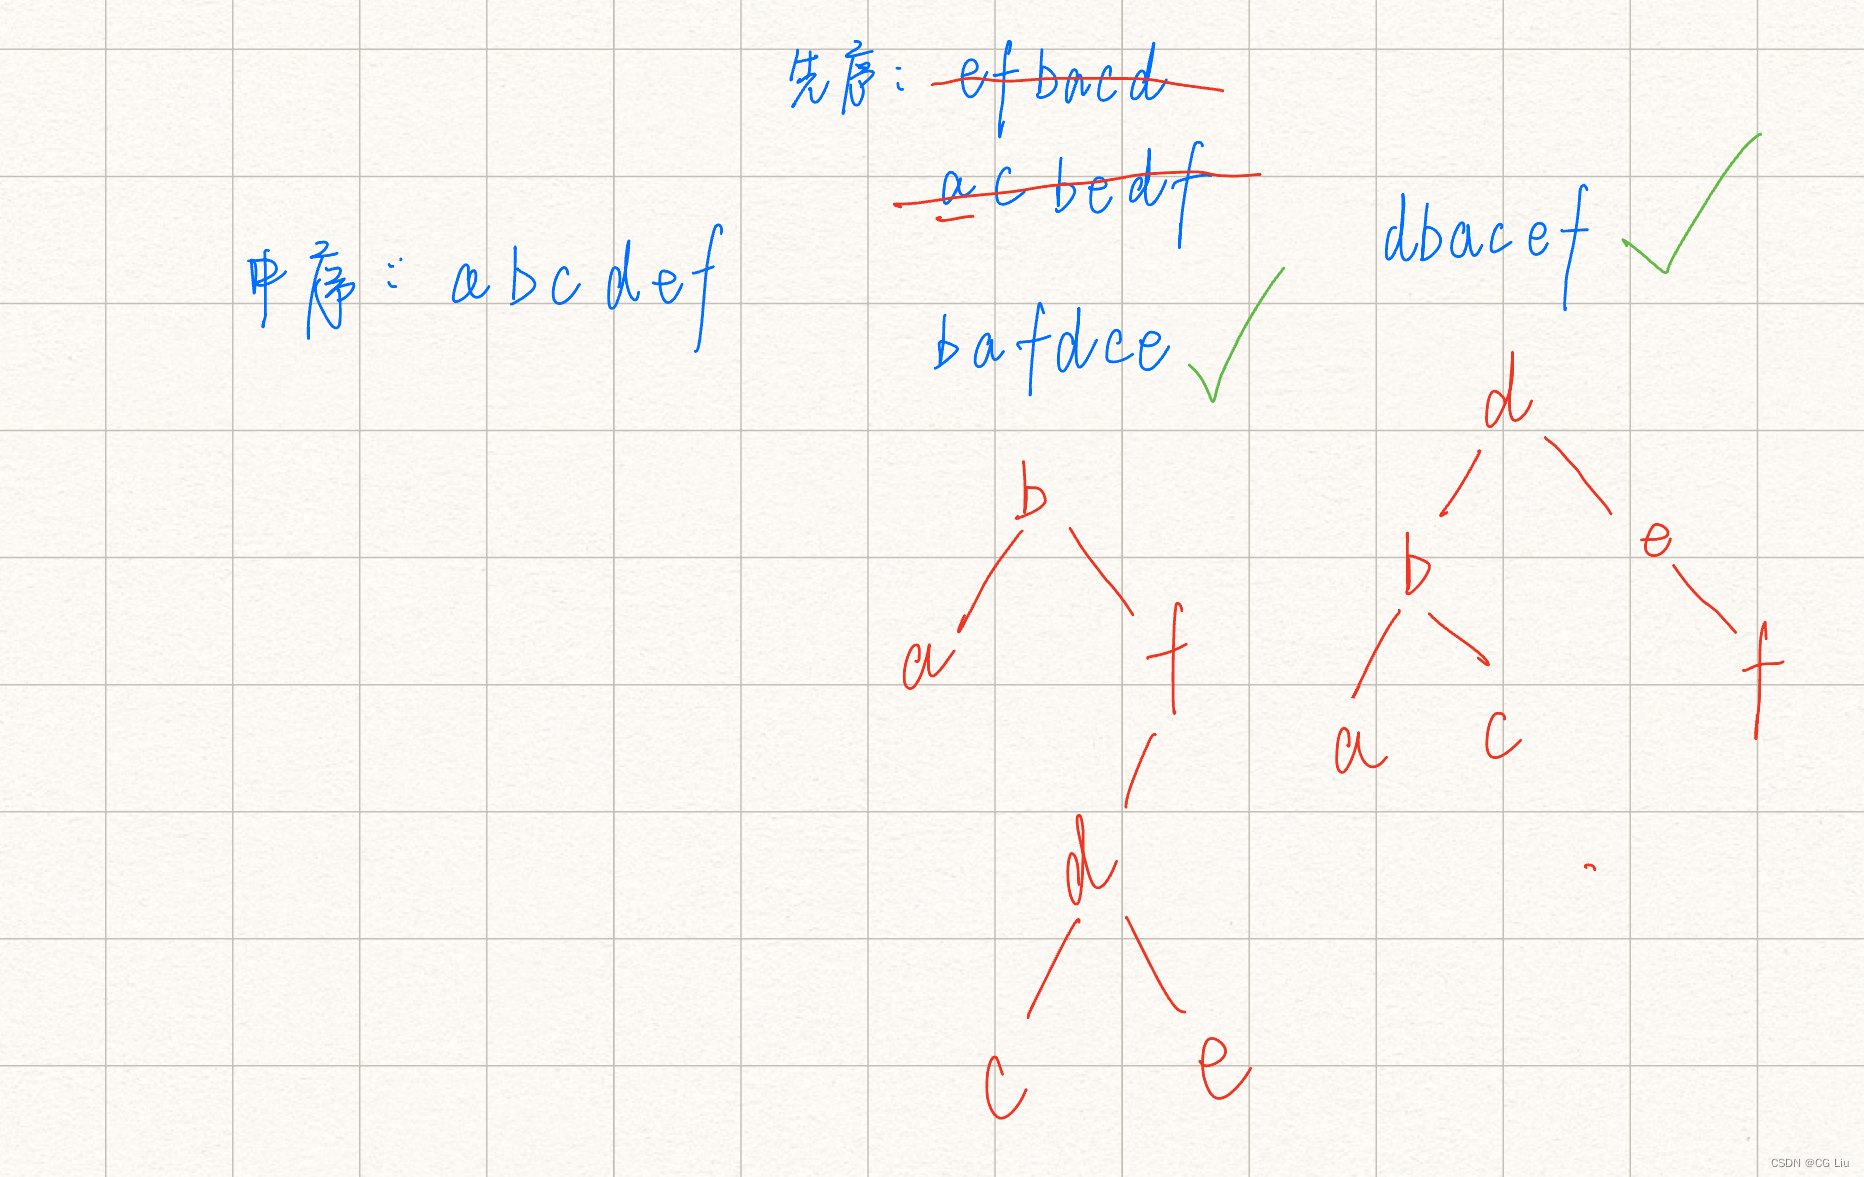 先序: efbacd
acbedf
dbacef
中序: abcdef
bafdce
d
b
e
b
a
f
f
a
c
d
c
e
CSDN @CG Liu